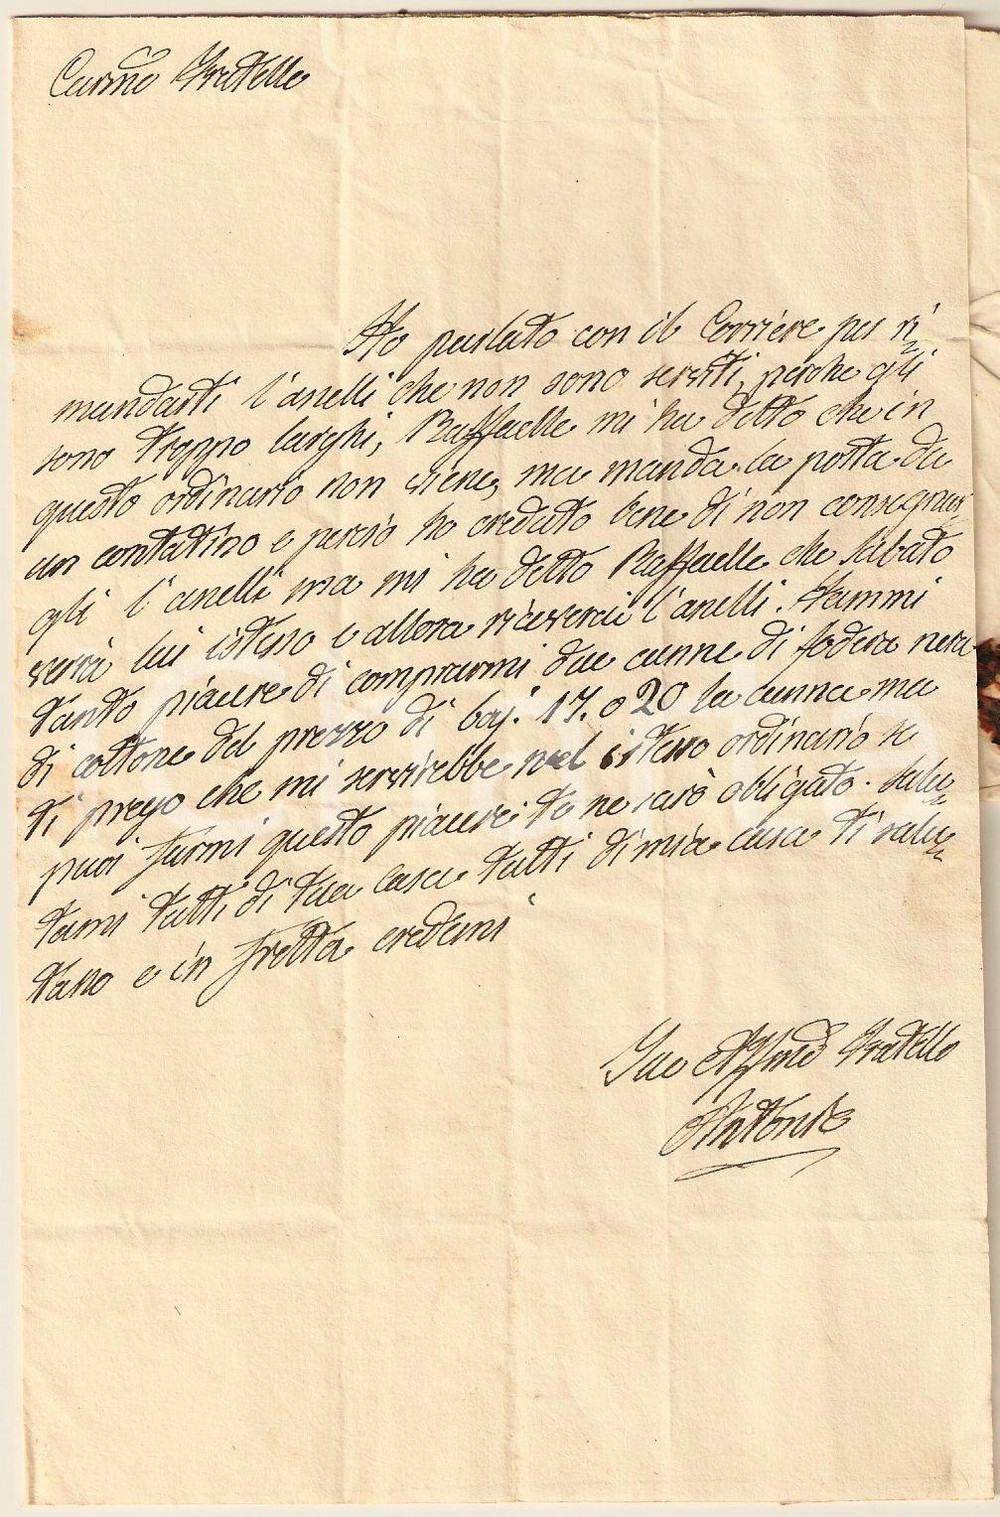 Carmo Fratello
Ho parlato con il Corriere per ri=
mandarti l'anelli che non sono serviti, perche gli
sono troppo larghi, Raffaelle mi ha detto che in
questo ordinario non viene, ma manda la posta da
un contadino e perciò ho creduto bene di non consegnar=
gli l'anelli ma mi ha detto Raffaelle che Sabato
verrà lui istesso e allora riceverai l'anelli. Fammi
tanto piacere di comprarmi due canne di fodera nera
di cottone del prezzo di baj. 17. o 20 la canna ma
ti prego che mi servirebbe nel istesso ordinario se
puoi farmi questo piacere te ne sarò obligato. Salu=
tami tutti di tua casa tutti di mia casa ti salu=
tano e in fretta credemi
Tuo Affmo Fratello
Antonio